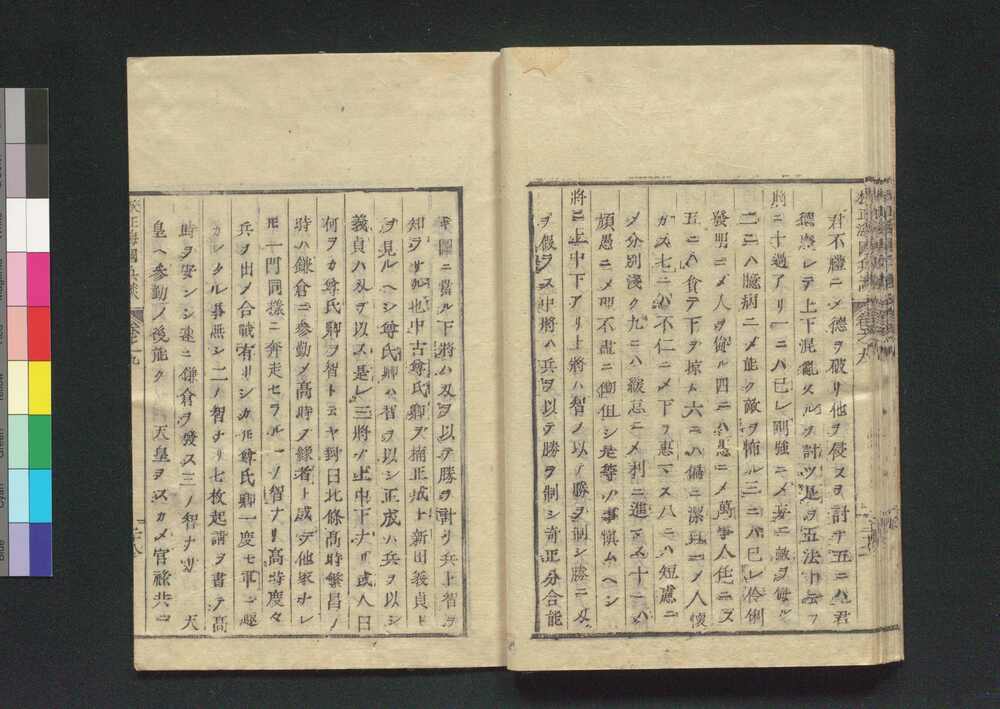 君不禮ニメ德ヲ破リ他ヲ侵スヲ討ツ五ニハ君
德衰レテ上下混亂スルヲ討ツ是ヲ五法ト云フ
將ニ十過アリ一ニハ己レ剛強ニメ妄ニ敵ヲ侮ル
二ニハ臆病ニメ能ク敵ヲ怖ル三ニハ己レ伶俐
發明ニメ人ヲ侮ル四ニハ愚ニメ萬事人任ニス
五ニハ貪テ下ヲ掠ム六ニハ偏ニ潔廉ニメ人懷
カス七ニハ不仁ニメ下ヲ惠マス八ニハ短慮ニ
メ分別淺ク九ニハ緩怠ニメ利ニ進マス十ニハ
頑愚ニメ明不盡ニ働但シ是等ノ事愼ムヘシ
將ニ上中下アリ上將ハ智ヲ以テ勝ヲ制シ勝ニ及
ヲ假ラス中將ハ兵ヲ以テ勝ヲ制シ奇正分合能
ク圖ニ當ル下將ハ刄ヲ以テ勝ヲ計リ兵上智ヲ
知ラサル也中古尊氏卿ヲ楠正成ト新田義貞ト
ヲ見ルヘシ尊氏卿ハ智ヲ以シ正成ハ兵ヲ以シ
義貞ハ刄ヲ以ス是レ三將ノ上中下ナリ或人曰
何ヲカ尊氏卿ヲ智ト云ヤ對曰北條高時繁昌ノ
時ハ鎌倉ニ參勤メ高時ノ縁者ト成テ他家ナレ
𪜈一門同樣ニ奔走セラル一ノ智ナリ高時度々
兵ヲ出メ合戰有リシカ𪜈尊氏卿一度モ軍ニ趣
カレタル事無シ二ノ智ナリ七枚起請ヲ書テ高
時ヲ安ンシ速ニ鎌倉ヲ發ス三ノ智ナリ 天
皇ヘ參勤ノ後能ク 天皇ヲスカメ官祿共ニ
校正海國兵談 卷之九